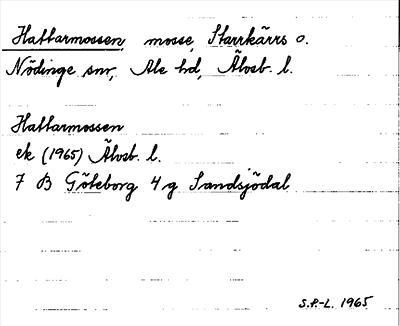 Hattarmossen, mosse, Starrkärrs o.
Nödinge snr, Ale hd, Älvsb. l.
Hattarmossen
ek (1965) Älvsb. l.
7 B Göteborg 4 g Sandsjödal
S.P.-L. 1965